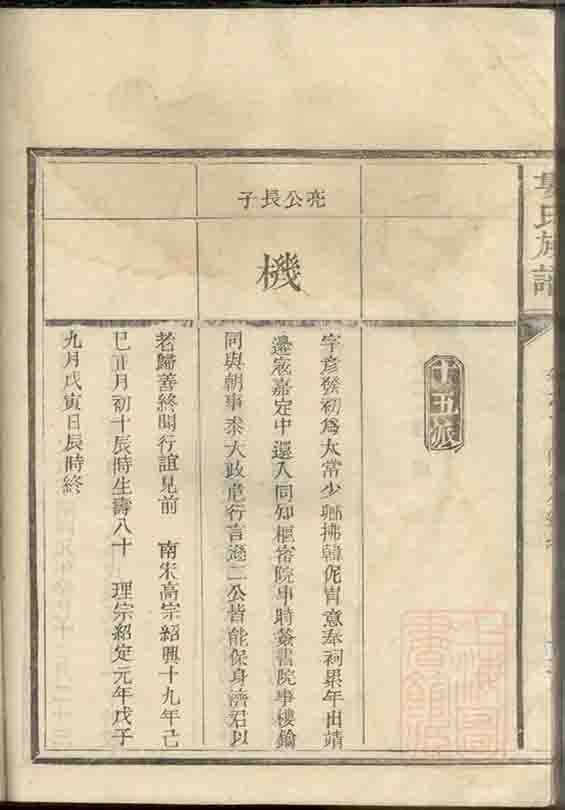 吳氏族譜
十五派
亮公長子
機
字彥發初爲太常少卿拂韓侂冑意奉祠累年由靖
邊寇嘉定中還入同知樞密院事時簽書院事樓鑰
同與朝事柰大政危行言遜二公皆能保身濟君以
老歸善終閥行誼見前 南宋高宗紹興十九年己
巳正月初十辰時生壽八十 理宗紹定元年戊子
九月戊寅日辰時終